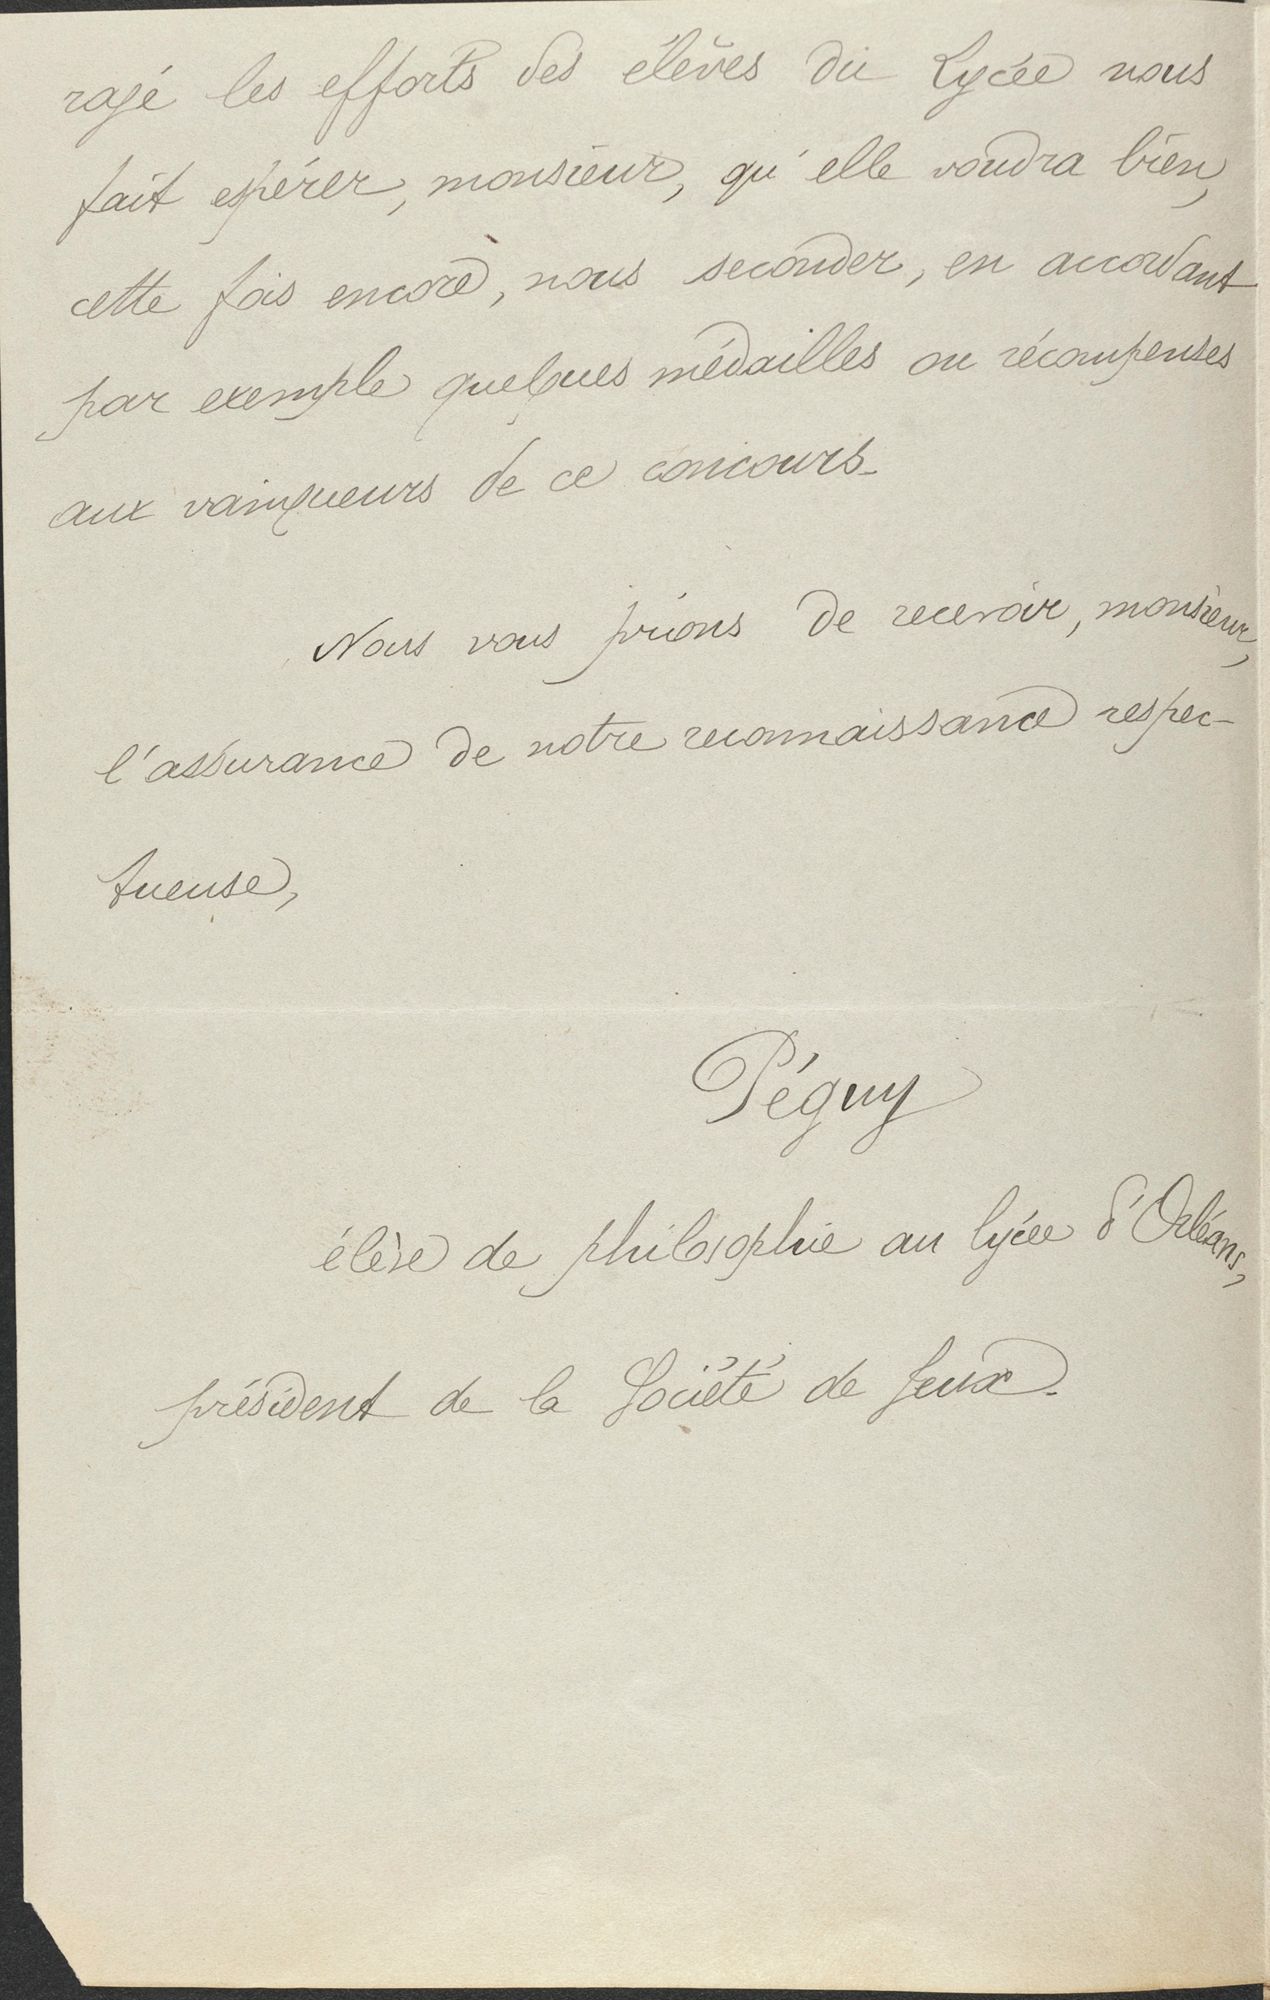 ragé les efforts des élèves du Lycée nous
fait espérer, monsieur, qu'elle voudra bien,
cette fois encore, nous seconder, en accordant
par exemple quelques médailles ou récompenses
aux vainqueurs de ce concours.
Nous vous prions de recevoir, monsieur,
l'assurance de notre reconnaissance respec-
tueuse,
Péguy
élève de philosophie au lycée d'Orléans,
président de la Société de Jeux.